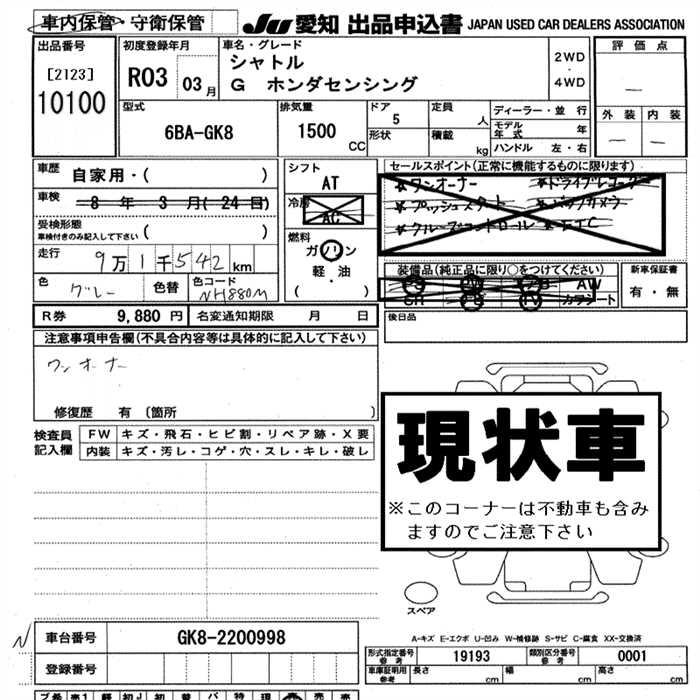 車内保管・守衛保管
JU 愛知 出品申込書 JAPAN USED CAR DEALERS ASSOCIATION
出品番号
[2123]
10100
初度登録年月
R03 03月
車名・グレード
シャトル
G ホンダセンシング
2WD
・
4WD
評価点
―
外装 内装
― ―
型式
6BA-GK8
排気量
1500 CC
ドア
5
形状
定員
人
積載
kg
ディーラー・並行
モデル年式 年
ハンドル 左・右
車歴
自家用・( )
車検
8 年 3 月(24 日)
受検形態
車検付きのみ記入して下さい ( )
走行
9万1千542 km
色
グレー
色替
色コード
NH880M
シフト
AT
冷房
AC
燃料
ガソリン
軽・油
( )
セールスポイント(正常に機能するものに限ります)
★ワンオーナー ★ドライブレコーダー
★プッシュスタート ★バックカメラ
★クルーズコントロール ★ETC
装備品(純正品に限り○をつけてください)
AW
カワシート
新車保証書
有・無
R券 9,880 円 名変通知期限 月 日
後日品
注意事項申告欄(不具合内容等は具体的に記入して下さい)
ワンオーナー
修復歴 有 〔箇所 〕
検査員記入欄
FW キズ・飛石・ヒビ割・リペア跡・X要
内装 キズ・汚レ・コゲ・穴・スレ・キレ・破レ
現状車
※このコーナーは不動車も含み
ますのでご注意下さい
スペア
A-キズ E-エクボ U-凹み W-補修跡 S-サビ C-腐食 XX-交換済
N
車台番号 GK8-2200998
登録番号
形式指定番号 参考 19193 類別区分番号 参考 0001
車庫証明用 参考 長さ cm 幅 cm 高さ cm